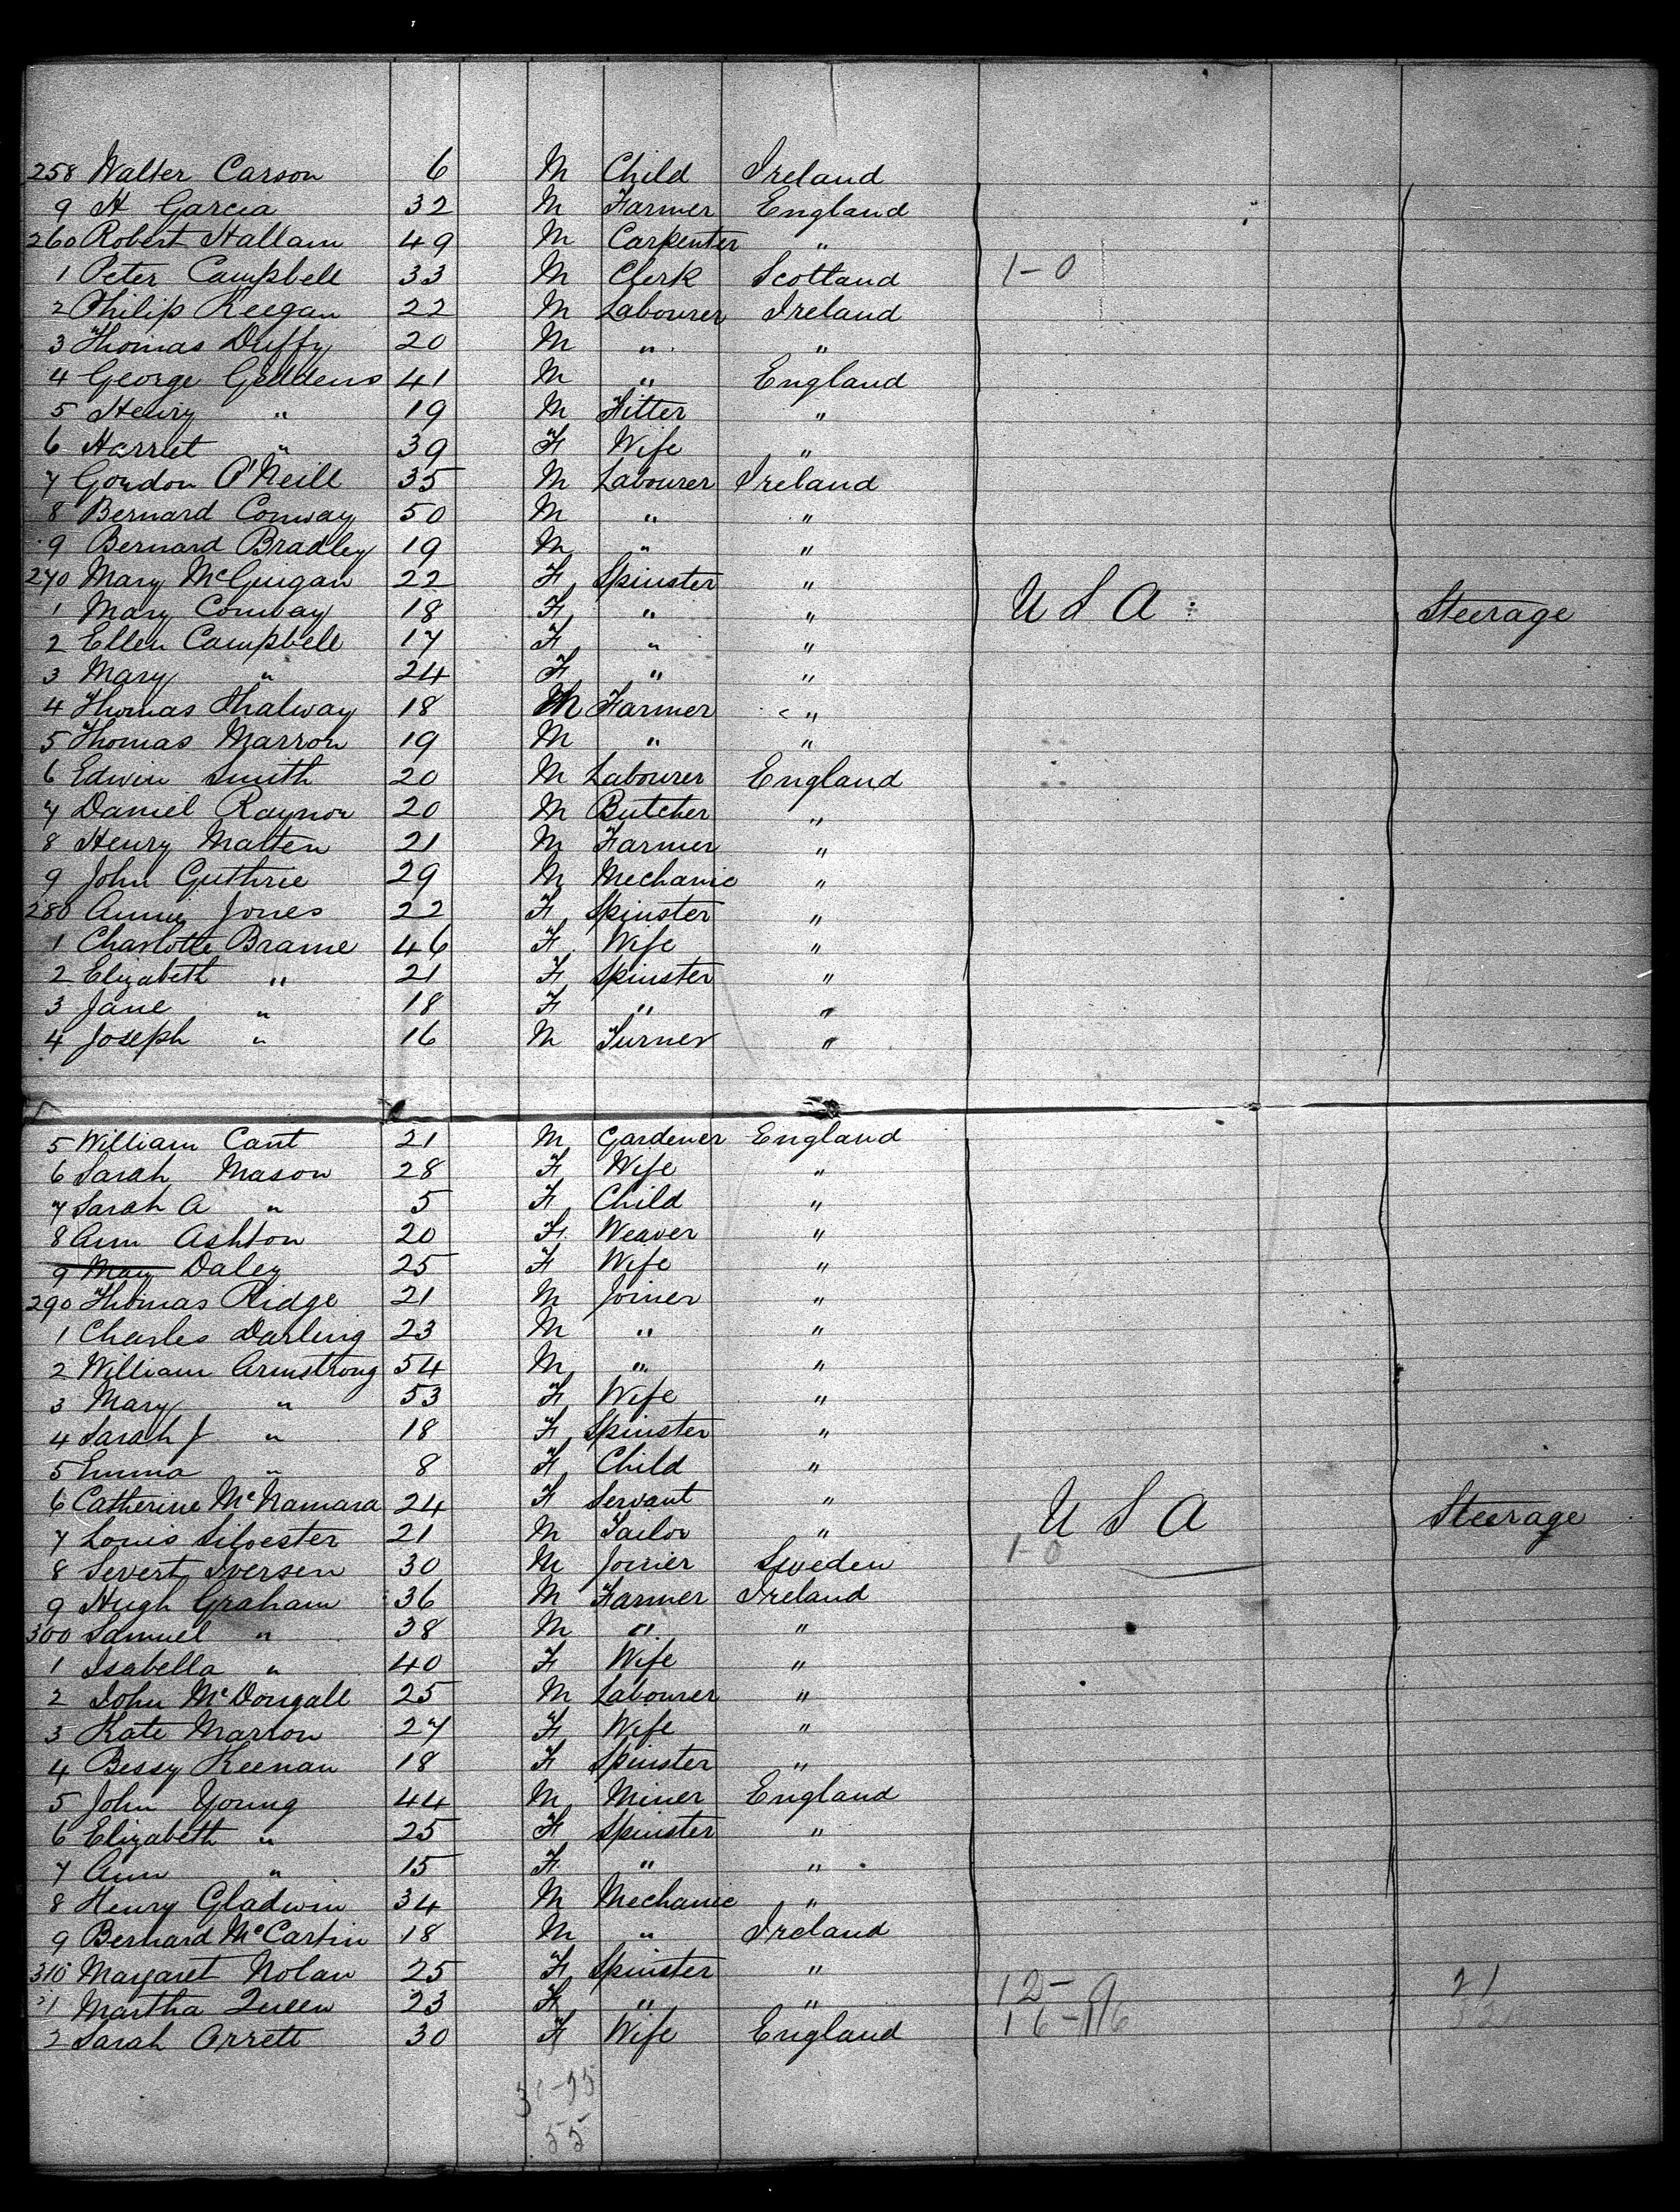 258 Walter Carson 6 M Child Ireland
9 H Garcia 32 M Farmer England
260 Robert Hallam 49 M Carpenter "
1 Peter Campbell 33 M Clerk Scotland 1-0
2 Philip Keegan 22 M Labourer Ireland
3 Thomas Duffy 20 M " "
4 George Geddens 41 M " England
5 Henry " 19 M Fitter "
6 Harriet " 39 F Wife "
7 Gordon O'Neill 35 M Labourer Ireland
8 Bernard Conway 50 M " "
9 Bernard Bradley 19 M " "
270 Mary McGuigan 22 F Spinster "
1 Mary Conway 18 F " " U S A Steerage
2 Ellen Campbell 17 F " "
3 Mary " 24 F " "
4 Thomas 18 M Farmer "
5 Thomas Marron 19 M " "
6 Edwin Smith 20 M Labourer England
7 Daniel Raynor 20 M Butcher "
8 Henry Matten 21 M Farmer "
9 John Guthrie 29 M Mechanic "
280 Annie Jones 22 F Spinster "
1 Charlotte Brame 46 F Wife "
2 Elizabeth " 21 F Spinster "
3 Jane " 18 F " "
4 Joseph " 16 M Turner "
5 William Cant 21 M Gardener England
6 Sarah Mason 28 F Wife "
7 Sarah A " 5 F Child "
8 Ann Ashton 20 F Weaver "
9 Mary Daley 25 F Wife "
290 Thomas Ridge 21 M Joiner "
1 Charles Darling 23 M " "
2 William Armstrong 54 M " "
3 Mary " 53 F Wife "
4 Sarah J " 18 F Spinster "
5 Emma " 8 F Child "
6 Catherine McNamara 24 F Servant " U S A Steerage
7 Louis Silvester 21 M Tailor "
8 Severt Iversen 30 M Joiner Sweden 1-0
9 Hugh Graham 36 M Farmer Ireland
300 Samuel " 38 M " "
1 Isabella " 40 F Wife "
2 John McDougall 25 M Labourer "
3 Kate Marron 27 F Wife "
4 Bessy Keenan 18 F Spinster "
5 John Young 44 M Miner England
6 Elizabeth " 25 F Spinster "
7 Ann " 15 F " "
8 Henry Gladwin 34 M Mechanic "
9 Bernard McCartin 18 M " Ireland
310 Margaret Nolan 25 F Spinster "
1 Martha Queen 23 F " " 12-9 21
2 Sarah Orrett 30 F Wife England 16-16
55